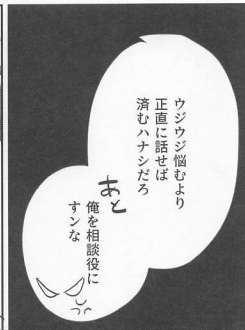 ウジウジ悩むより
正直に話せば
済むハナシだろ
あと
俺を相談役に
すンな